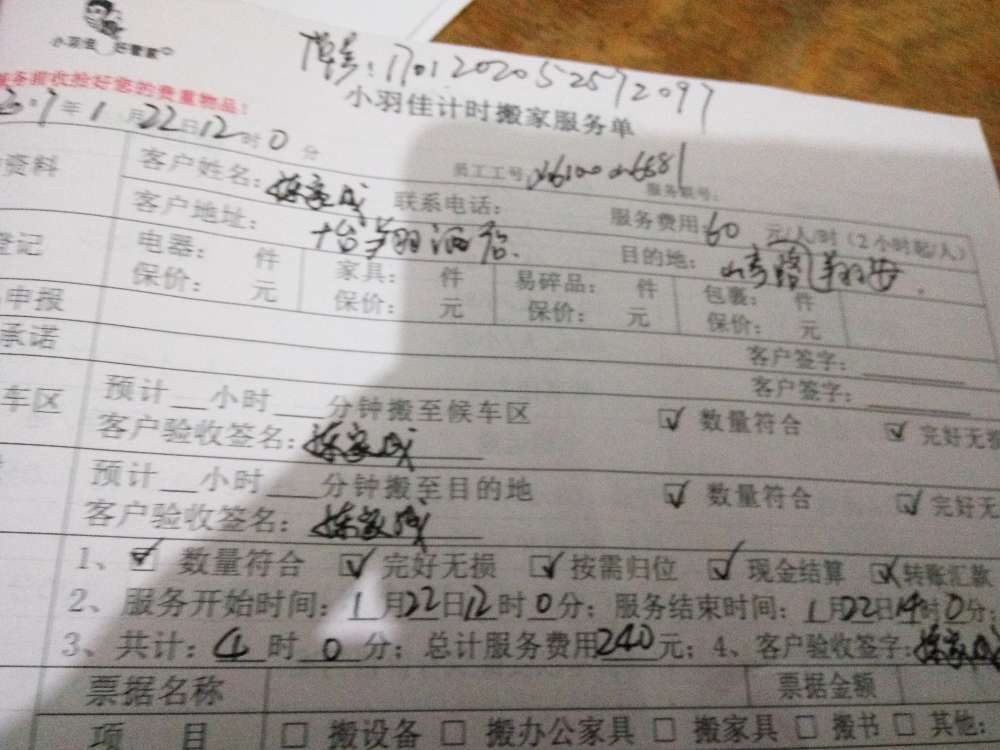 小羽佳 好管家
单号：1701202052572097
务前收拾好您的贵重物品！
小羽佳计时搬家服务单
7年1月22日12时0分
员工工号： 服务联号：
资料 客户姓名： 联系电话： 服务费用：60元/人/时（2小时起/人）
客户地址： 目的地：
登记 电器： 件 家具： 件 易碎品： 件 包裹： 件
保价： 元 保价： 元 保价： 元 保价： 元
申报 客户签字：
承诺 客户签字：
车区 预计 小时 分钟搬至候车区 数量符合 完好无损
客户验收签名：
预计 小时 分钟搬至目的地 数量符合 完好无
客户验收签名：
1、 数量符合 完好无损 按需归位 现金结算 转账汇款
2、服务开始时间：1月22日12时0分；服务结束时间：1月22日14时0分；
3、共计：4时0分；总计服务费用240元；4、客户验收签字：
票据名称 票据金额
项目 搬设备 搬办公家具 搬家具 搬书 其他：